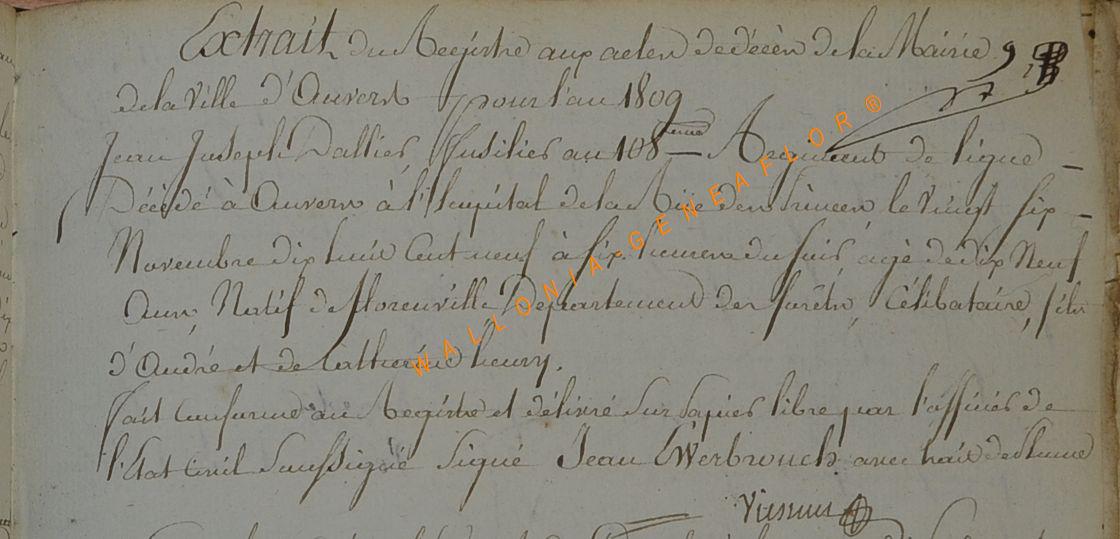 Extrait du Registre aux actes de décès de la Mairie
de la Ville d'Anvers pour l'an 1809
Jean Joseph Dallies, Fusilier au 108eme Régiment de ligne
Décédé à Anvers à l'hopital de la Rüe des Princes le vingt six
Novembre dix huit Cent neuf à six heures du soir agé de dix Neuf
Ans, Natif de florenville Département des forêts, Célibataire, fils
d'André et de Catherine henry.
fait Conforme au Registre et délivré Sur papier libre par l'officier de
l'Etat Civil Soussigné Signé Jean EWerbrouck avec trait de Plume
WALLONIA-GENEAFLOR®